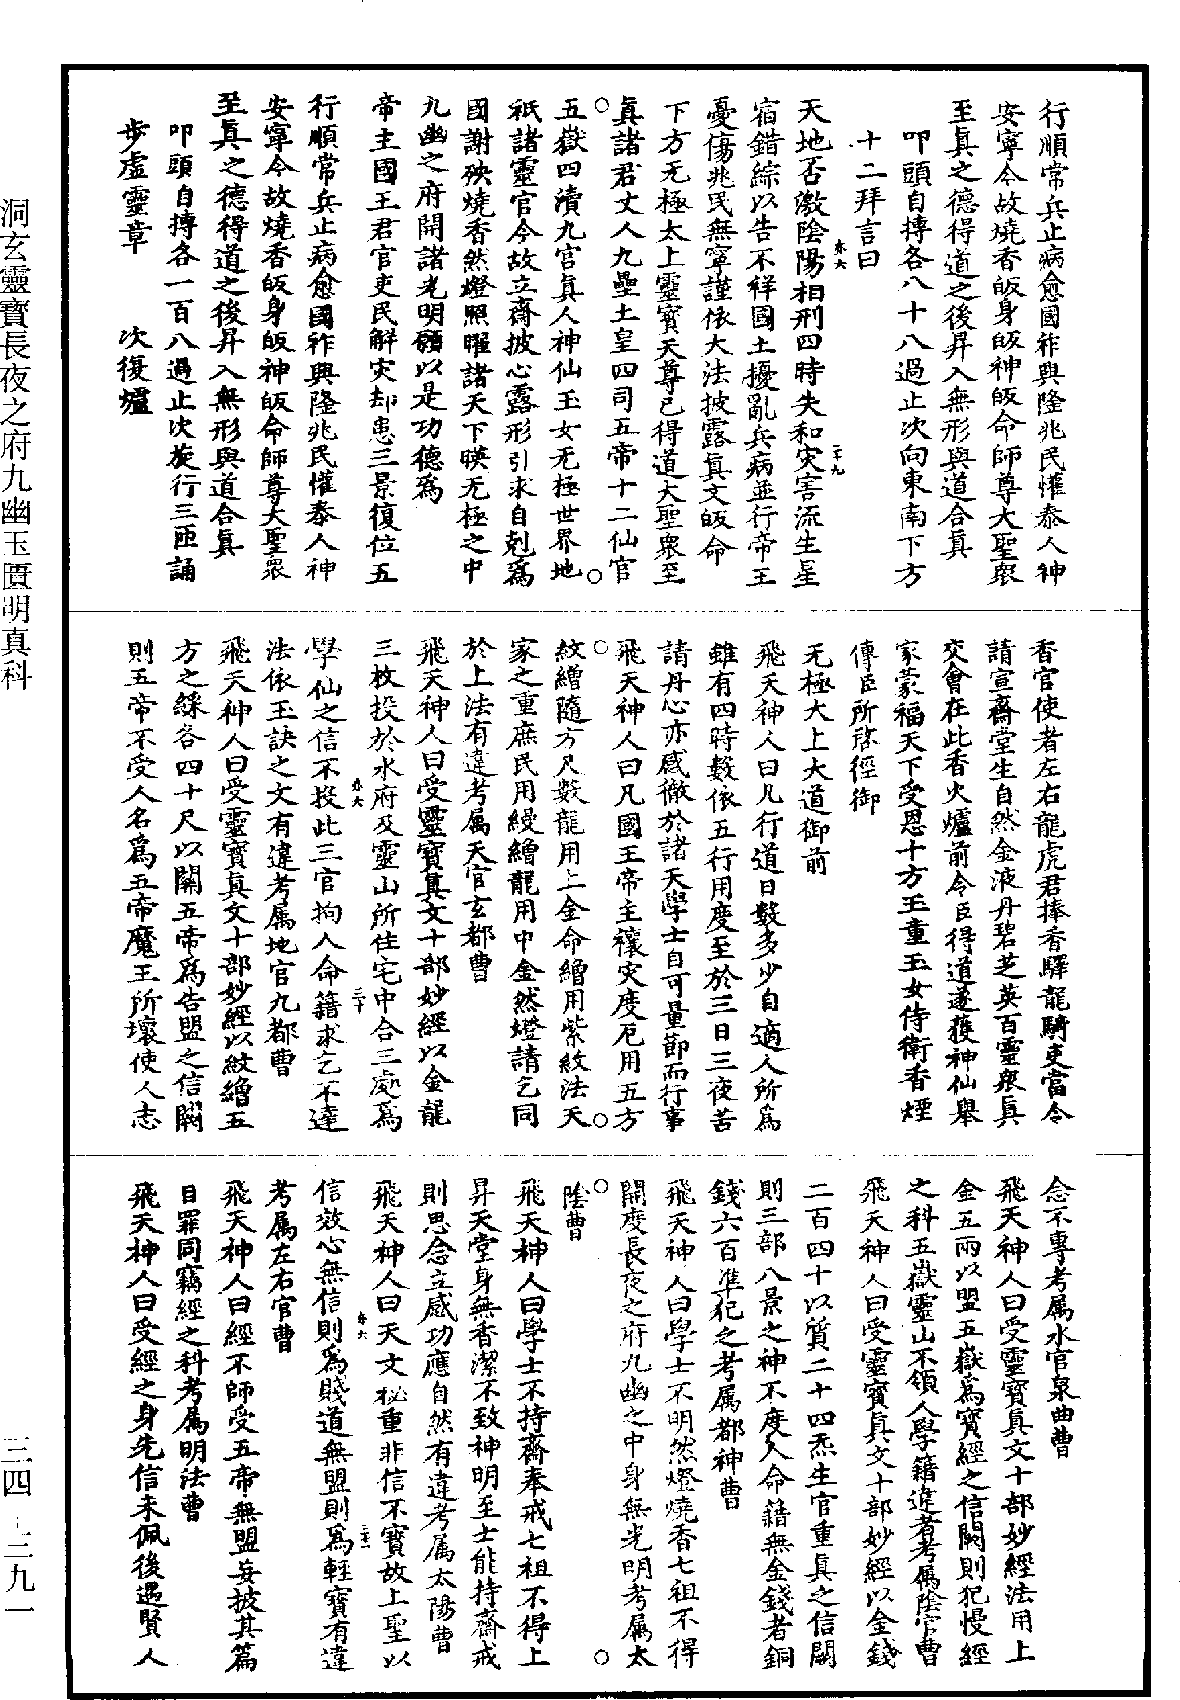 行順常兵止病愈國祚興隆兆民懽泰人神
安寧今故燒香皈身皈神皈命師尊大聖衆
至真之德得道之後昇入無形與道合真
叩頭自搏各八十八過止次向東南下方
十二拜言曰
天地否激陰陽相刑四時失和灾害流生星
宿錯綜以告不祥國土擾亂兵病並行帝王
憂傷兆民無寧謹依大法披露真文皈命
下方无極太上靈寳天尊已得道大聖衆至
真諸君丈人九壘土皇四司五帝十二仙官
五嶽四瀆九宫真人神仙玉女无極世界地
祇諸靈官今故立齋披心露形引求自剋爲
國謝殃燒香然燈照曜諸天下暎无極之中
九幽之府開諸光明願以是功德爲
帝主國王君官吏民解灾却患三景復位五
行順常兵止病愈國祚興隆兆民懽泰人神
安寧今故燒香皈身皈神皈命師尊大聖衆
至真之德得道之後昇入無形與道合真
叩頭自搏各一百八過止次旋行三匝誦
步虚靈章　次復爐
香官使者左右龍虎君捧香驛龍騎吏當令
請宣齋堂生自然金液丹碧芝英百靈衆真
交會在此香火爐前令臣得道遂獲神仙舉
家蒙福天下受恩十方玉童玉女侍衛香煙
傳臣所啓徑御
无極大上大道御前
飛天神人曰凡行道日數多少自適人所爲
雖有四時數依五行用度至於三日三夜苦
請丹心亦感徹於諸天學士自可量節而行事
飛天神人曰凡國王帝主禳灾度厄用五方
紋繒隨方尺數龍用上金命繒用紫紋法天
家之重庶民用縵繒龍用中金然燈請乞同
於上法有違考属天官玄都曹
飛天神人曰受靈寳真文十部妙經以金龍
三枚投於水府及靈山所住宅中合三處爲
學仙之信不投此三官拘人命籍求乞不達
法依玉訣之文有違考属地官九都曹
飛天神人曰受靈寳真文十部妙經以紋繒五
方之綵各四十尺以關五帝爲告盟之信闕
則五帝不受人名爲五帝魔王所壞使人志
念不專考属水官泉曲曹
飛天神人曰受靈寳真文十部妙經法用上
金五兩以盟五嶽爲寳經之信闕則犯慢經
之科五嶽靈山不領人學籍違者考属陰官曹
飛天神人曰受靈寳真文十部妙經以金錢
二百四十以質二十四炁生官重真之信闕
則三部八景之神不度人命籍無金錢者銅
錢六百準犯之考属都神曹
飛天神人曰學士不明然燈燒香七祖不得
開度長夜之府九幽之中身無光明考属太
陰曹
飛天神人曰學士不持齋奉戒七祖不得上
昇天堂身無香潔不致神明至士能持齋戒
則思念立感功應自然有違考属太陽曹
飛天神人曰天文秘重非信不寳故上聖以
信效心無信則爲賤道無盟則爲輕寳有違
考属左右官曹
飛天神人曰經不師受五帝無盟妄披其篇
目罪同竊經之科考属明法曹
飛天神人曰受經之身先信未佩後遇賢人
洞玄靈寶長夜之府九幽玉匱明真科
三四－三九一